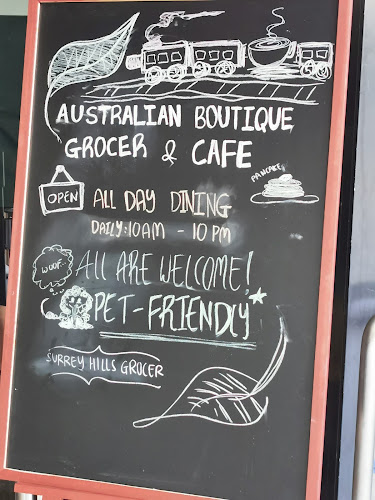 AUSTRALIAN BOUTIQUE
GROCER & CAFE
PANCAKE
OPEN
ALL DAY DINING
DAILY: 10AM - 10 PM
WOOF
ALL ARE WELCOME!
PET-FRIENDLY*
SURREY HILLS GROCER